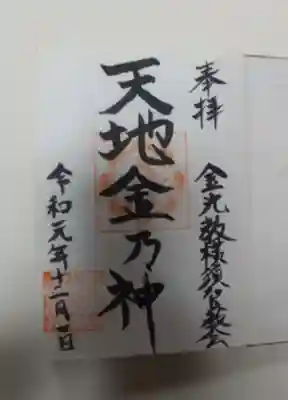 奉拝
金光教横須賀教会
天地金乃神
令和元年十二月一日